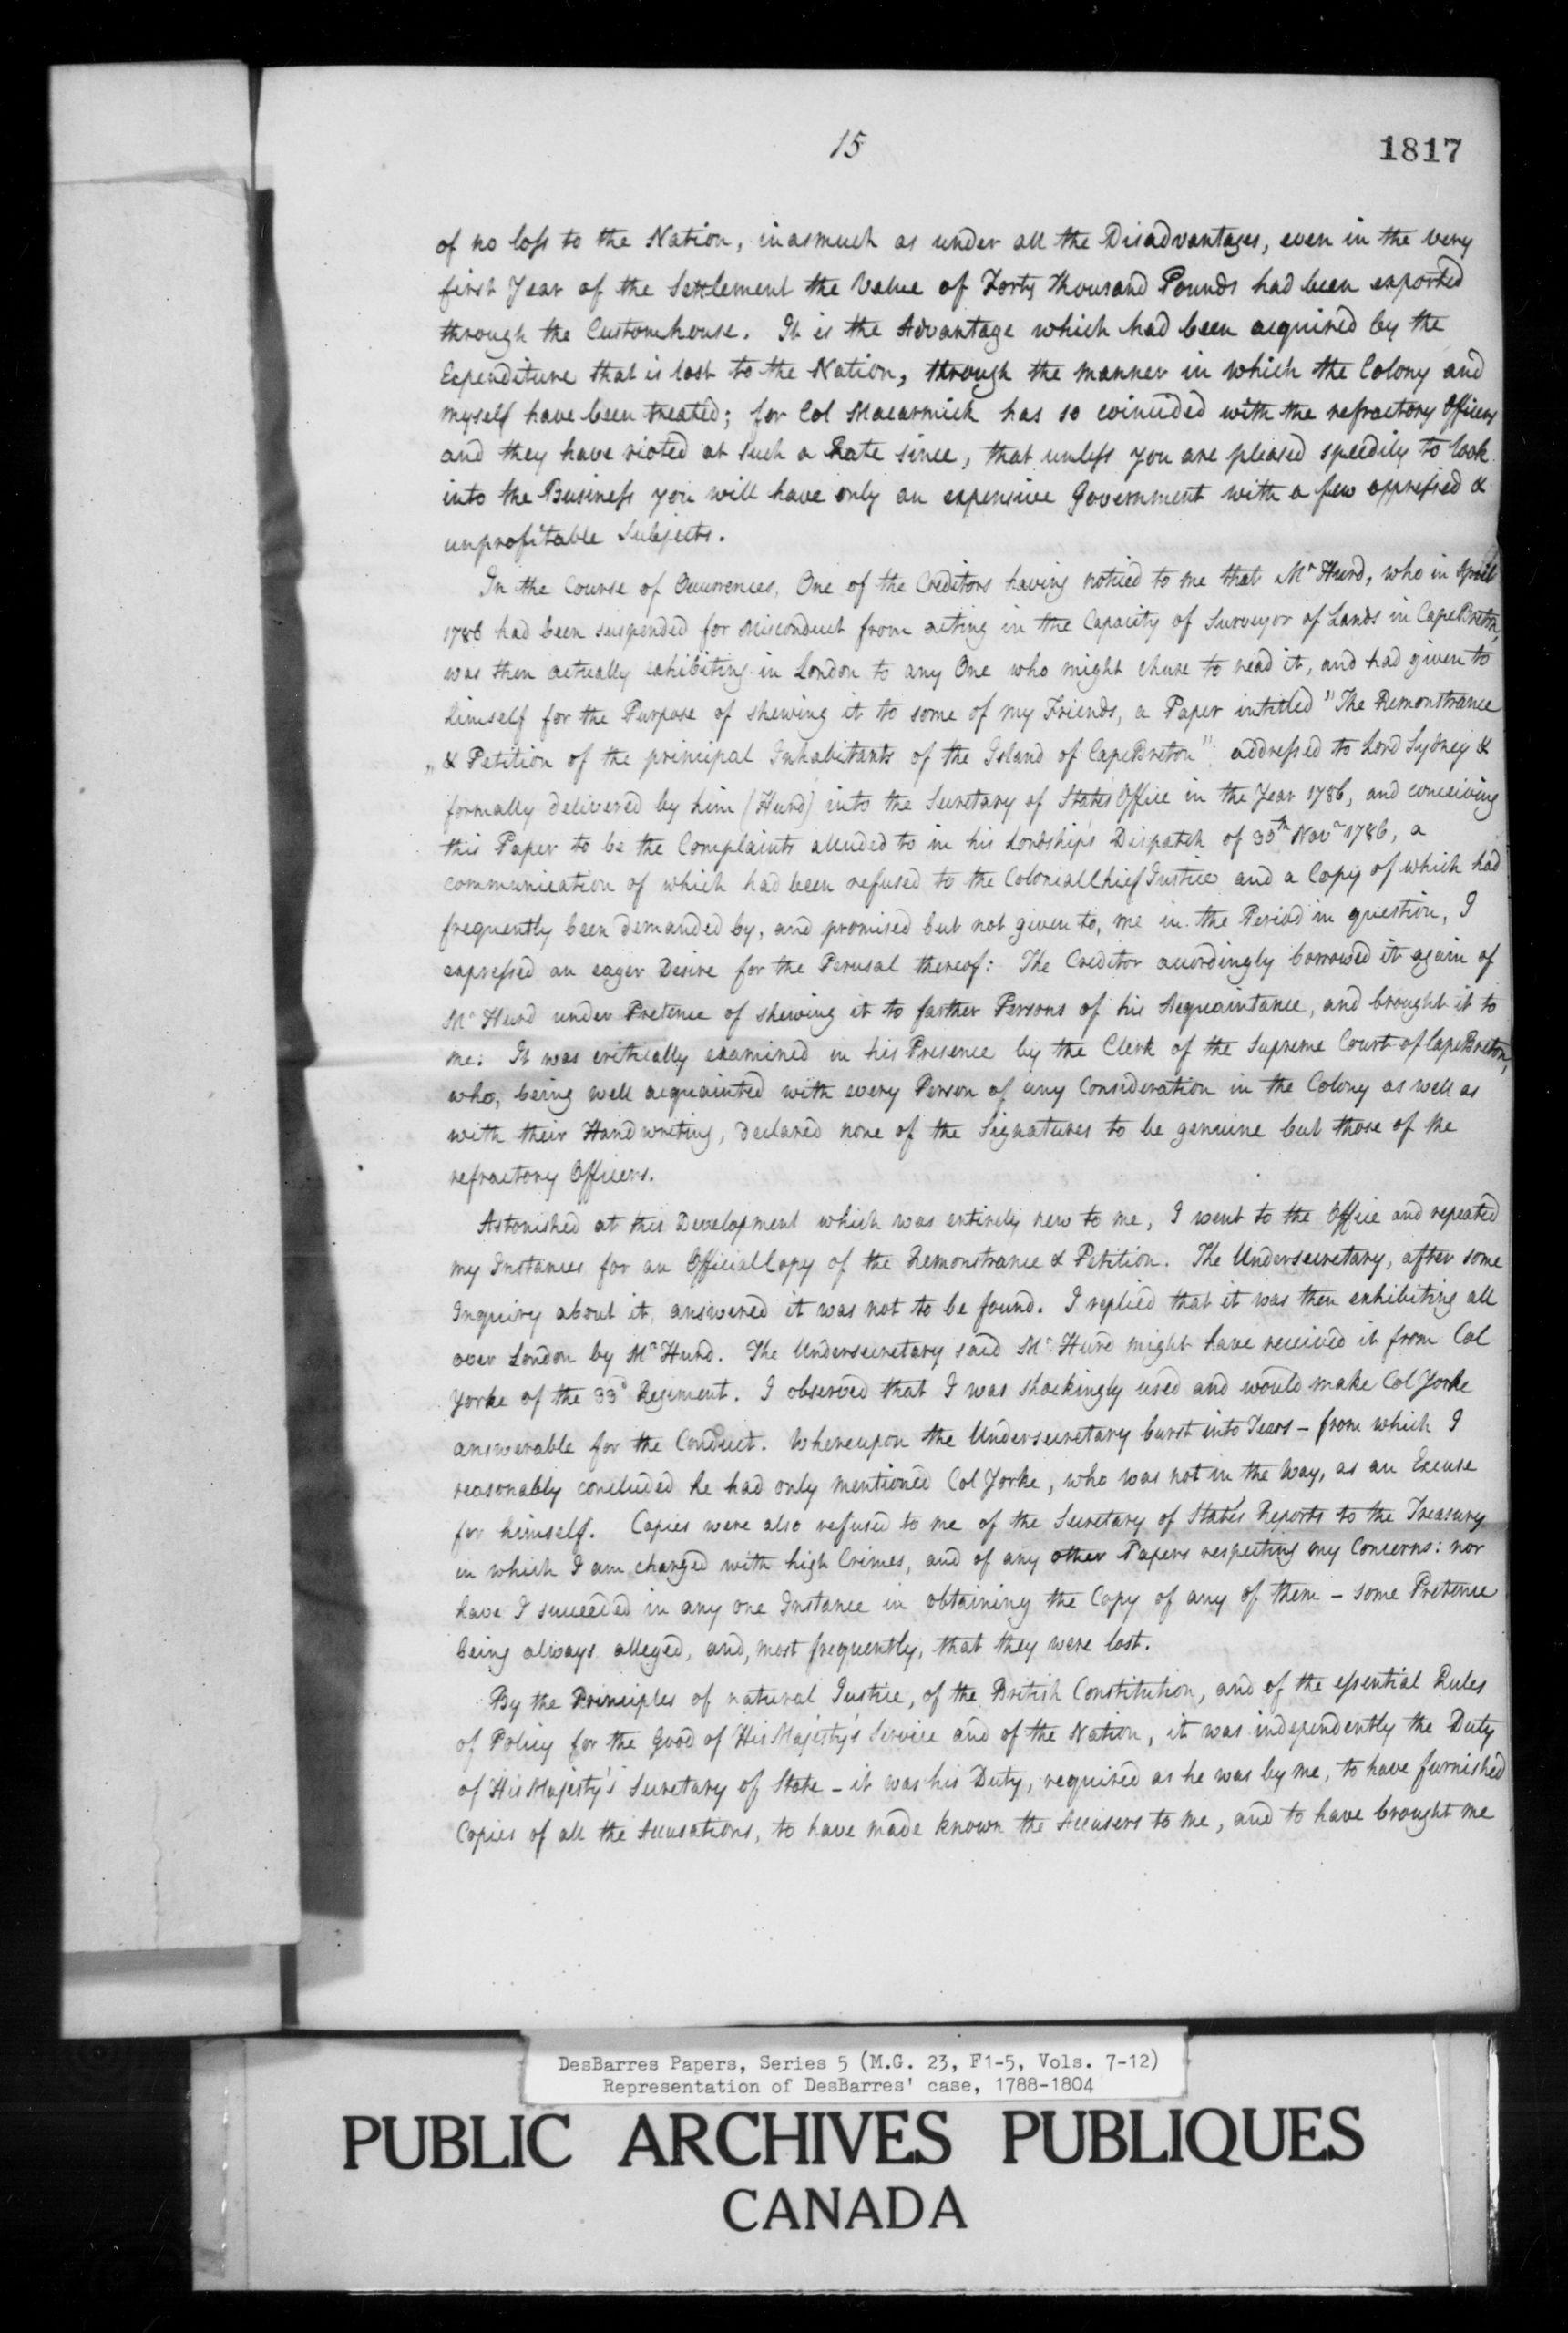 15
1817
of no loss to the Nation, inasmuch as under all the Disadvantages, even in the very
first Year of the Settlement the Value of Forty thousand Pounds had been exported
through the Customhouse. It is the Advantage which had been acquired by the
Expenditure that is lost to the Nation, through the manner in which the Colony and
myself have been treated; for Col Macarmick has so coincided with the refractory Officers
and they have rioted at such a Rate since, that unless you are pleased speedily to look
into the Business you will have only an expensive Government with a few oppressed &
unprofitable Subjects.
In the Course of Occurrences, One of the Creditors having noticed to me that Mr Hurd, who in April
1786 had been suspended for Misconduct from acting in the Capacity of Surveyor of Lands in CapeBreton,
was then actually exhibiting in London to any One who might chuse to read it, and had given to
himself for the Purpose of shewing it to some of my Friends, a Paper intitled "The Remonstrance
„ & Petition of the principal Inhabitants of the Island of CapeBreton" addressed to Lord Sydney &
formally delivered by him (Hurd) into the Secretary of State's Office in the Year 1786, and conceiving
this Paper to be the Complaints alluded to in his Lordship's Dispatch of 30th Novr 1786, a
communication of which had been refused to the Colonial Chief Justice and a Copy of which had
frequently been demanded by, and promised but not given to, me in the Period in question, I
expressed an eager Desire for the Perusal thereof: The Creditor accordingly borrowed it again of
Mr Hurd under Pretence of shewing it to farther Persons of his Acquaintance, and brought it to
me: It was critically examined in his Presence by the Clerk of the Supreme Court of CapeBreton,
who, being well acquainted with every Person of any Consideration in the Colony as well as
with their Handwriting, declared none of the Signatures to be genuine but those of the
refractory Officers.
Astonished at this Development which was entirely new to me, I went to the Office and repeated
my Instances for an Official Copy of the Remonstrance & Petition. The Undersecretary, after some
Inquiry about it, answered it was not to be found. I replied that it was then exhibiting all
over London by Mr Hurd. The Undersecretary said Mr Hurd might have received it from Col
Yorke of the 33d Regiment. I observed that I was shockingly used and would make Col Yorke
answerable for the Conduct. Whereupon the Undersecretary burst into Tears – from which I
reasonably concluded he had only mentioned Col Yorke, who was not in the Way, as an Excuse
for himself. Copies were also refused to me of the Secretary of State's Reports to the Treasury
in which I am charged with high Crimes, and of any other Papers respecting my Concerns: nor
have I succeeded in any one Instance in obtaining the Copy of any of them – some Pretence
being always alleged, and, most frequently, that they were lost.
By the Principles of natural Justice, of the British Constitution, and of the essential Rules
of Policy for the Good of His Majesty's Service and of the Nation, it was independently the Duty
of His Majesty's Secretary of State – it was his Duty, required as he was by me, to have furnished
Copies of all the Accusations, to have made known the Accusers to me, and to have brought me
DesBarres Papers, Series 5 (M.G. 23, F1-5, Vols. 7-12)
Representation of DesBarres' case, 1788-1804
PUBLIC ARCHIVES PUBLIQUES
CANADA